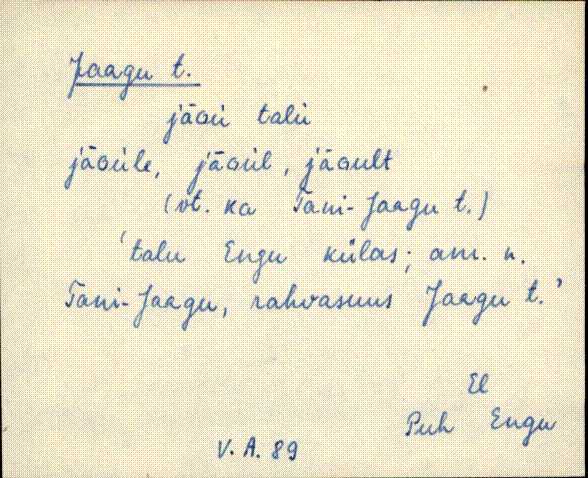 Jaagu t.
jāGù talù
jāGùle, jāGùl, jāGult
(vt. ka Tani-Jaagu t.)
'talu Engu külas; am. n.
Tani-Jaagu, rahvasuus Jaagu t.'
El
Puh Engu
V. A. 89